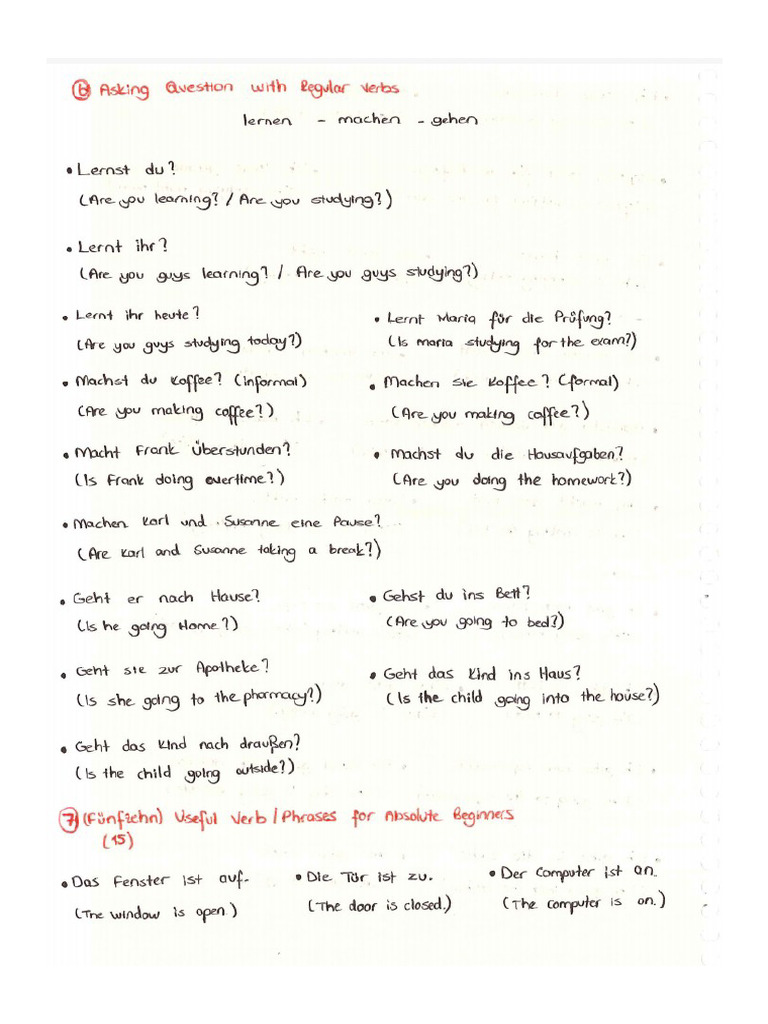 ⑥ Asking Question with Regular Verbs
lernen - machen - gehen
• Lernst du?
(Are you learning? / Are you studying?)
• Lernt ihr?
(Are you guys learning? / Are you guys studying?)
• Lernt ihr heute?
(Are you guys studying today?)
• Lernt Maria für die Prüfung?
(Is maria studying for the exam?)
• Machst du Koffee? (informal)
(Are you making coffee?)
• Machen sie Koffee? (formal)
(Are you making coffee?)
• Macht Frank Überstunden?
(Is Frank doing overtime?)
• Machst du die Hausaufgaben?
(Are you doing the homework?)
• Machen Karl und Susanne eine Pause?
(Are Karl and Susanne taking a break?)
• Geht er nach Hause?
(Is he going Home?)
• Gehst du ins Bett?
(Are you going to bed?)
• Geht sie zur Apotheke?
(Is she going to the pharmacy?)
• Geht das Kind ins Haus?
(Is the child going into the house?)
• Geht das Kind nach draußen?
(Is the child going outside?)
⑦ (Fünfzehn) Useful Verb / Phrases for Absolute Beginners
(15)
• Das Fenster ist auf.
(The window is open.)
• Die Tür ist zu.
(The door is closed.)
• Der Computer ist an.
(The computer is on.)